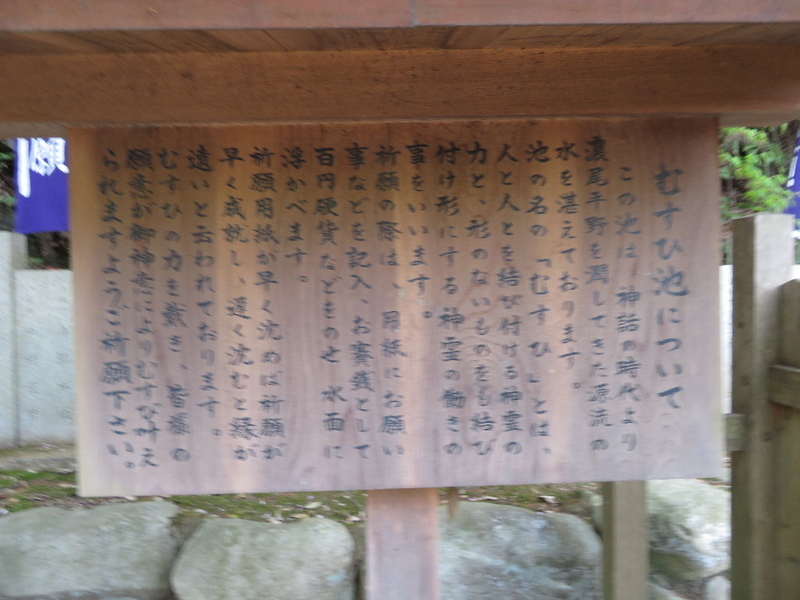 むすひ池について
この池は、神話の時代より
濃尾平野を潤してきた源流の
水を湛えております。
池の名の「むすひ」とは、
人と人とを結び付ける神霊の
力と、形のないものをも結び
付け形にする神霊の働きの
事をいいます。
祈願の際は、用紙にお願い
事などを記入、お賽銭として
百円硬貨などをのせ水面に
浮かべます。
祈願用紙が早く沈めば祈願が
早く成就し、遅く沈むと縁が
遠いと云われております。
むすひの力を戴き、皆様の
願意が御神意によりむすび叶え
られますようご祈願下さい。
願